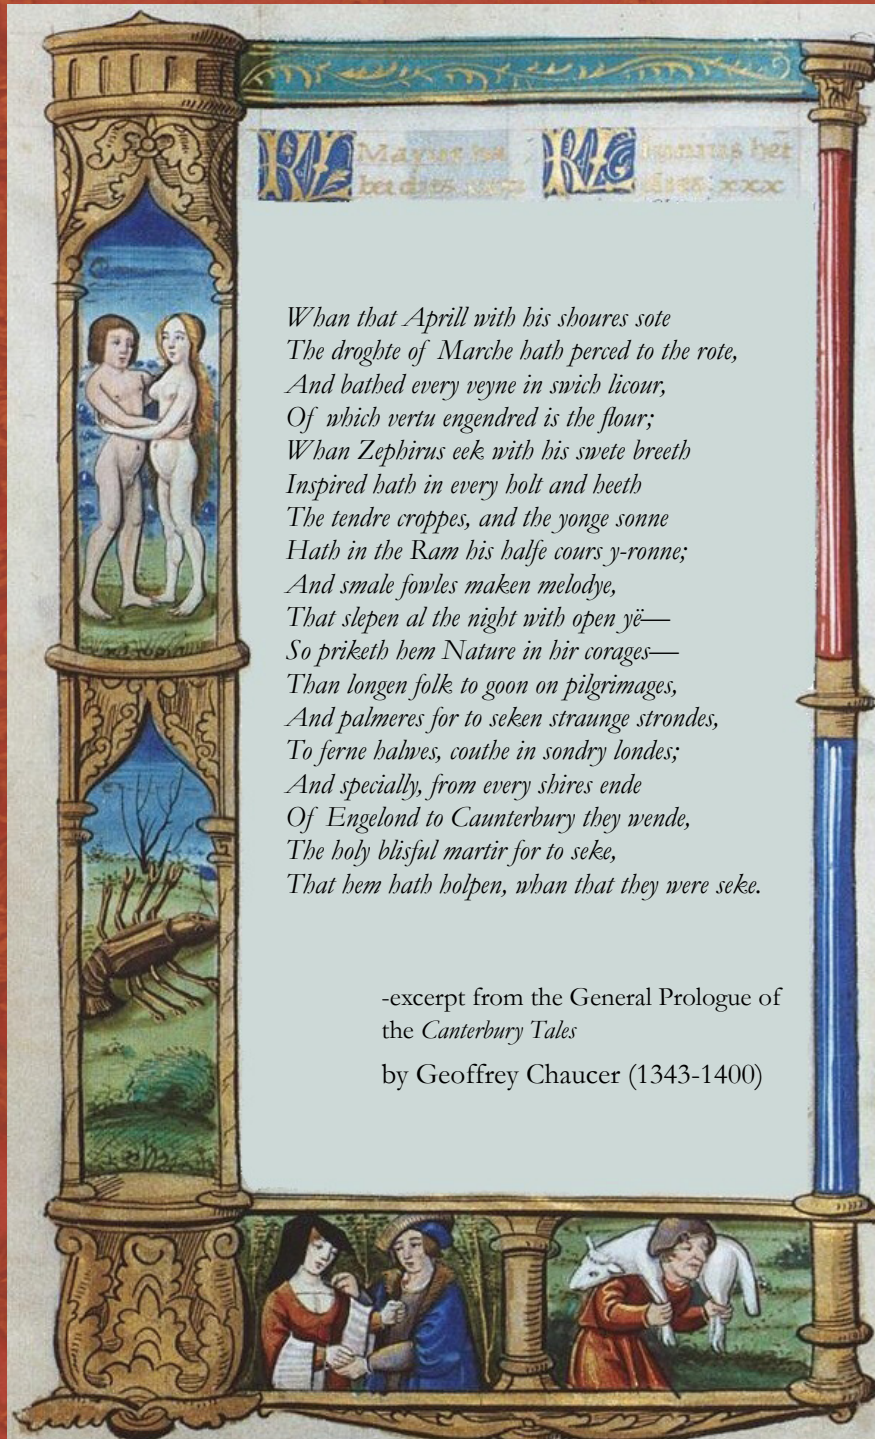 KL Mayus h
bet dies
KL Iunius het
dies xxx
Whan that Aprill with his shoures sote
The droghte of Marche hath perced to the rote,
And bathed every veyne in swich licour,
Of which vertu engendred is the flour;
Whan Zephirus eek with his swete breeth
Inspired hath in every holt and heeth
The tendre croppes, and the yonge sonne
Hath in the Ram his halfe cours y-ronne;
And smale fowles maken melodye,
That slepen al the night with open yë—
So priketh hem Nature in hir corages—
Than longen folk to goon on pilgrimages,
And palmeres for to seken straunge strondes,
To ferne halwes, couthe in sondry londes;
And specially, from every shires ende
Of Engelond to Caunterbury they wende,
The holy blisful martir for to seke,
That hem hath holpen, whan that they were seke.
-excerpt from the General Prologue of
the Canterbury Tales
by Geoffrey Chaucer (1343-1400)